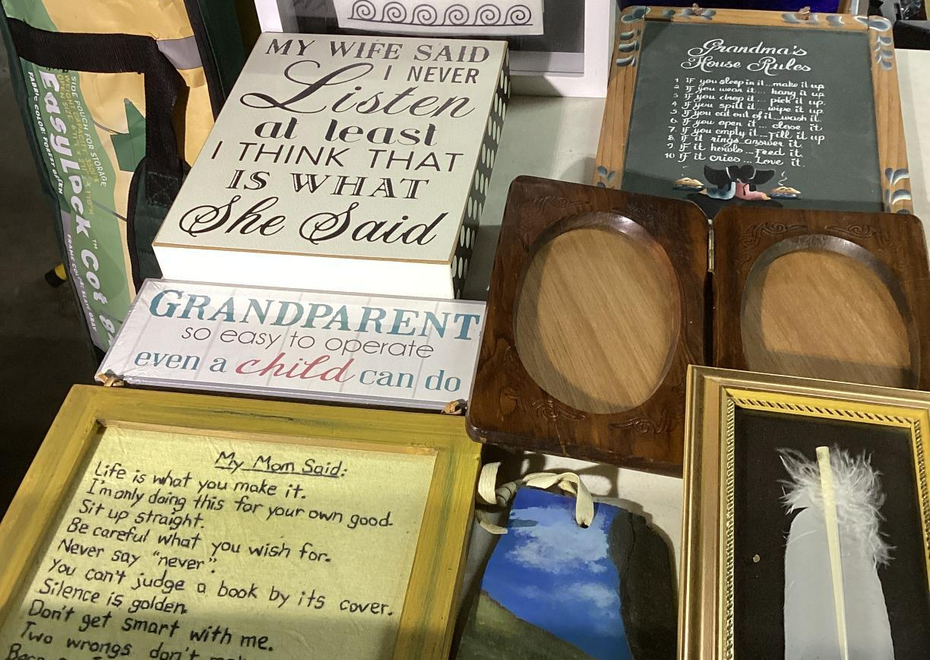 MY WIFE SAID
I NEVER
Listen
at least
I THINK THAT
IS WHAT
She Said
Grandma's
House Rules
1 If you sleep in it...make it up
2 If you wear it... hang it up
3 If you drop it... pick it up
4 If you spill it... wipe it up
5 If you eat out of it...wash it
6 If you open it... close it
7 If you empty it...Fill it up
8 If it rings answer it
9 If it howls...Feed it
10 If it cries...Love it
SIDE POUCH FOR STORAGE
EasyPack™ Cot
GRANDPARENT
so easy to operate
even a child can do
My Mom Said:
Life is what you make it.
I'm only doing this for your own good.
Sit up straight.
Be careful what you wish for.
Never say "never".
You can't judge a book by its cover.
Silence is golden.
Don't get smart with me.
Two wrongs don't